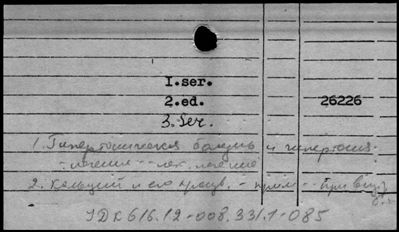 I.ser.
2.ed. 26226
3. Ser.
1. Гипертоническая болезнь и гипертония-
- лечение -- лек. лечение
2. Кальций и его произв. - прим. -- при
УДК 616.12-008.331.1-085